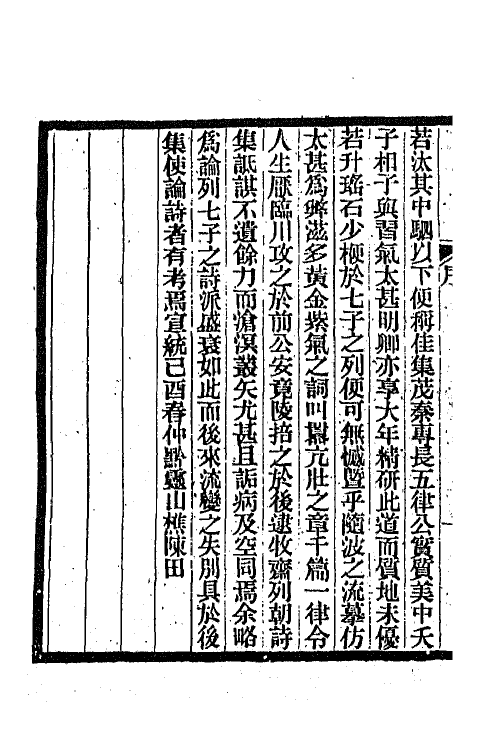 若汰其中駟以下便稱佳集茂秦專長五律公實質美中夭
子相子與習氣太甚明卿亦享大年精研此道而質地未優
若升瑤石少楩於七子之列便可無憾暨乎隨波之流摹仿
太甚爲弊滋多黃金紫氣之詞叫囂亢壯之章千篇一律令
人生厭臨川攻之於前公安竟陵掊之於後逮牧齋列朝詩
集詆諆不遺餘力而滄溟叢矢尤甚且詬病及空同焉余略
爲論列七子之詩派盛衰如此而後來流變之失別具於後
集使論詩者有考焉宣統己酉春仲黔靈山樵陳田
序